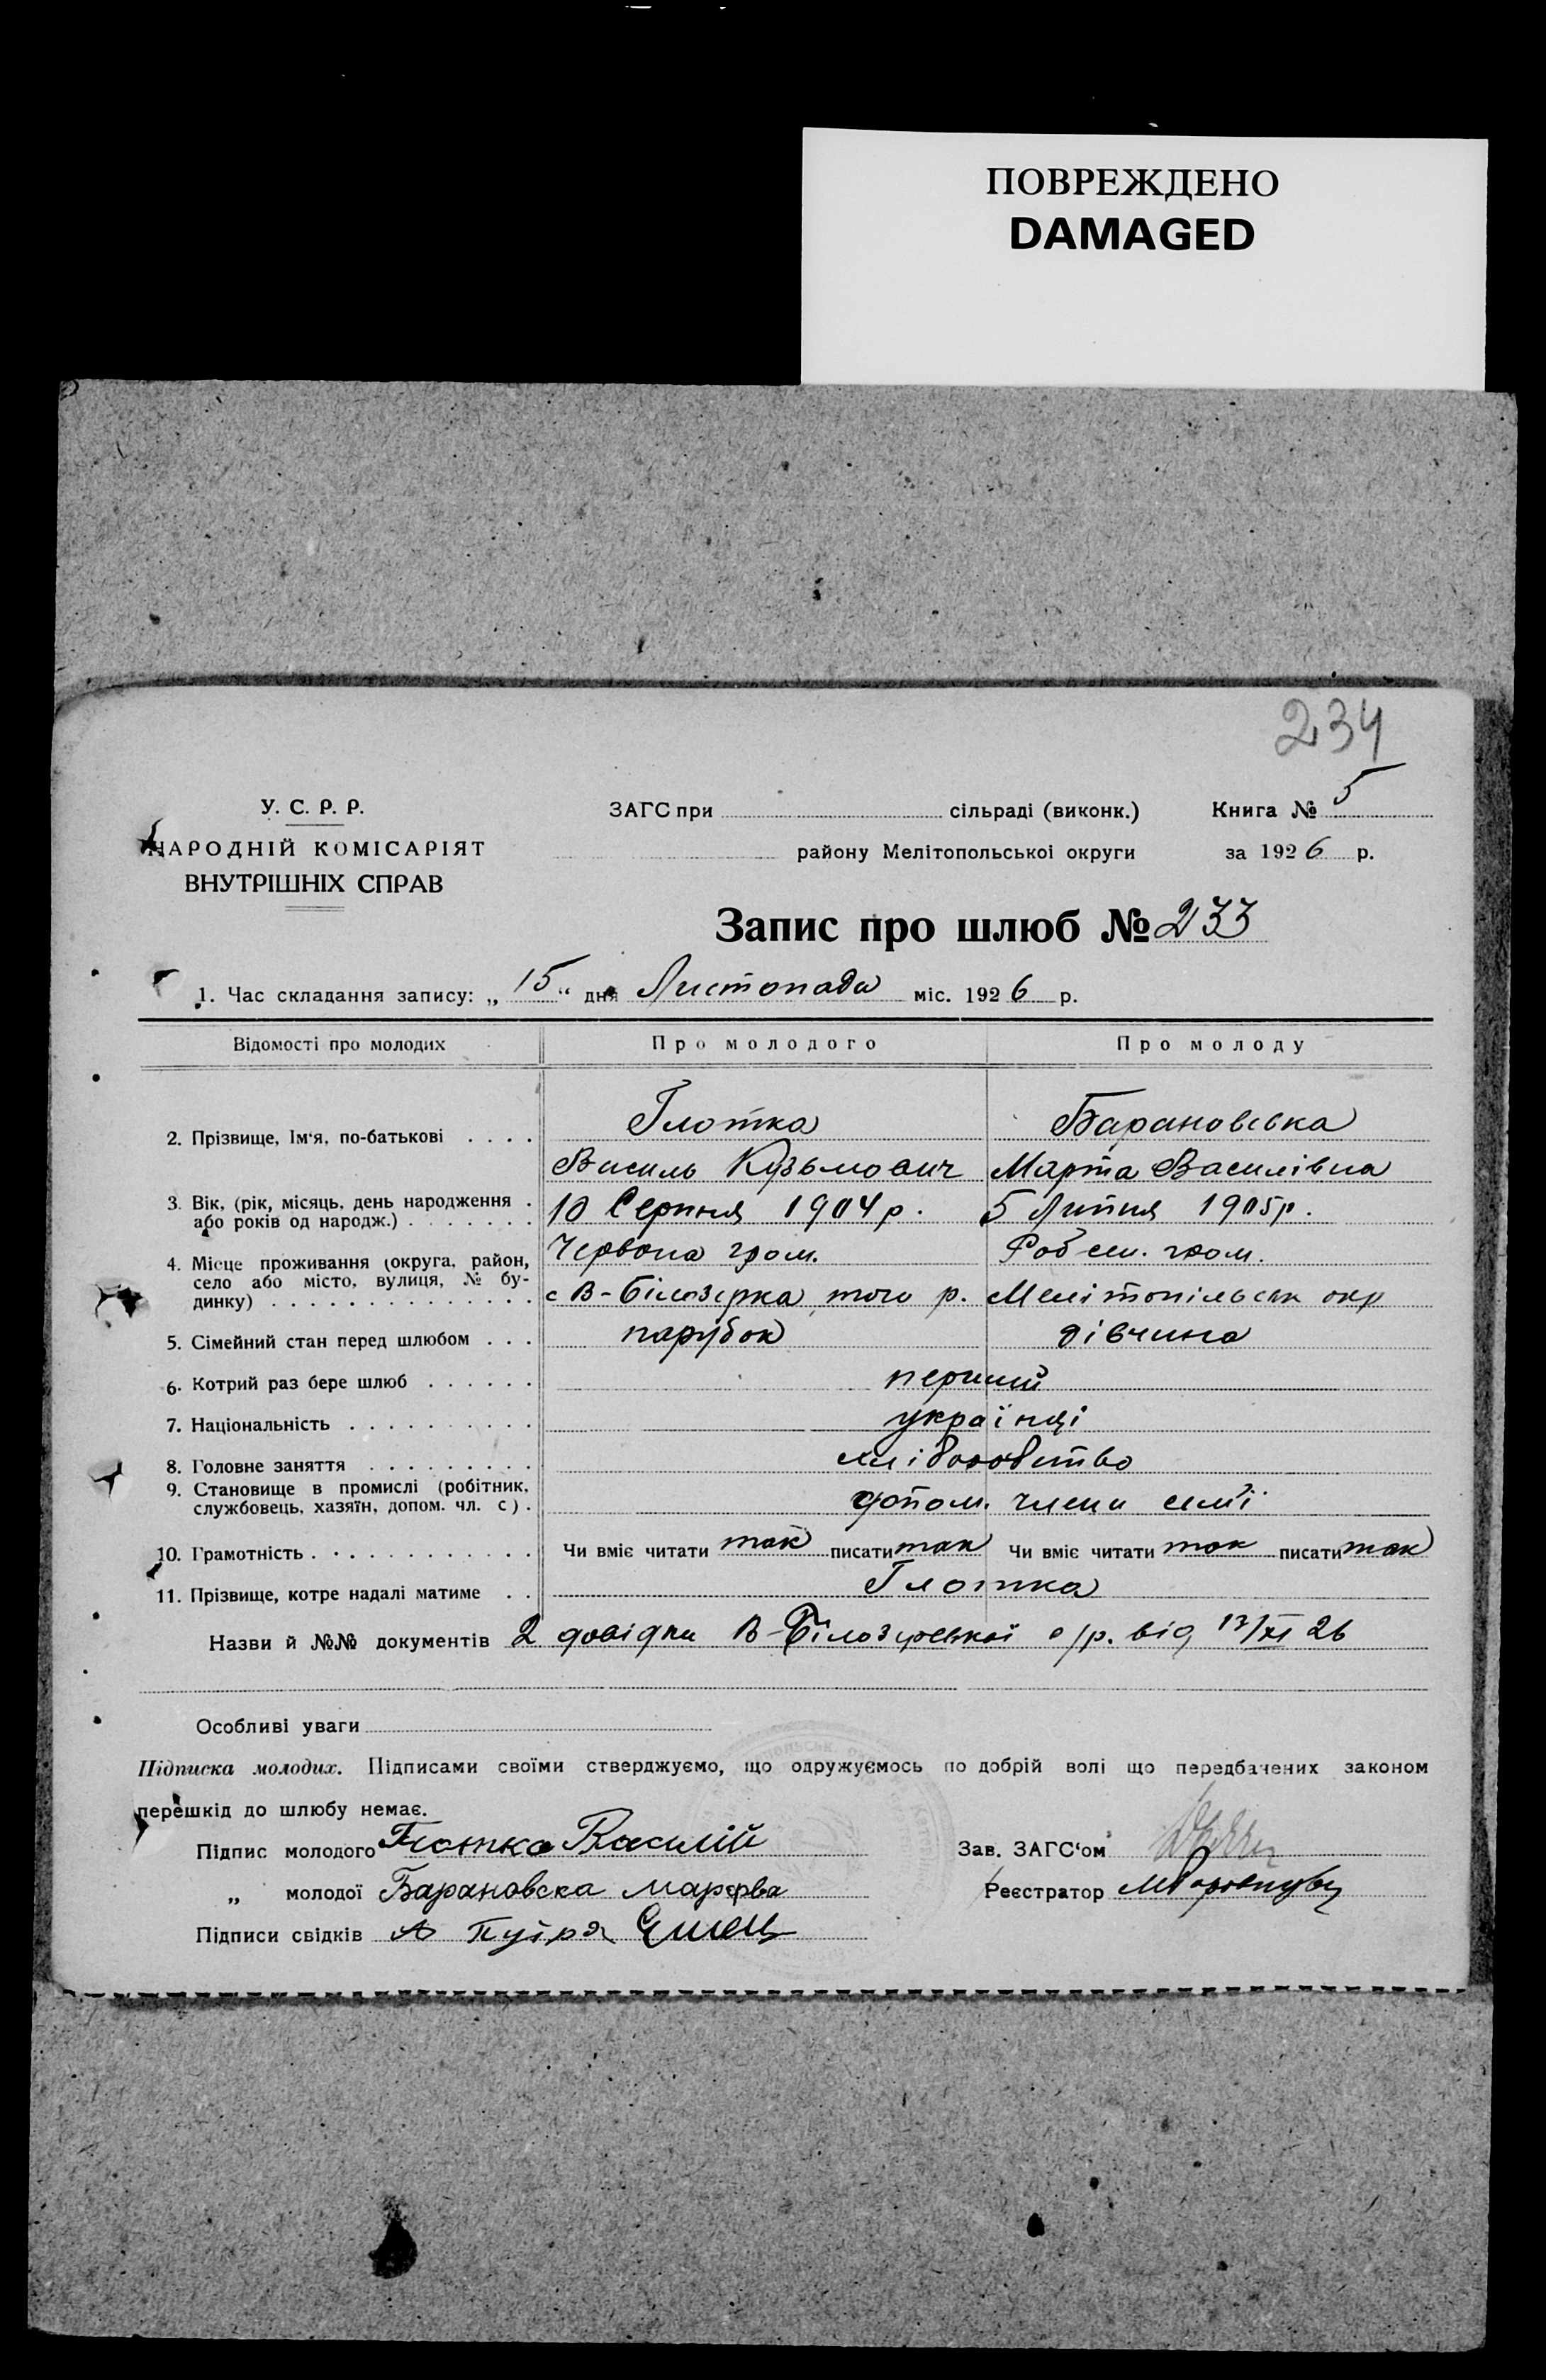 ПОВРЕЖДЕНО
DAMAGED
234
У. С. Р. Р.
НАРОДНІЙ КОМІСАРІЯТ
ВНУТРІШНІХ СПРАВ
ЗАГС при сільраді (виконк.)
району Мелітопольськоі округи
Книга № 5
за 1926 р.
Запис про шлюб № 233
1. Час складання запису: „ 15 “ дня Листопада міс. 1926 р.
Відомості про молодих Про молодого Про молоду
2. Прізвище, Ім‘я, по-батькові . . . . Глотка Барановська
Василь Кузьмович Марта Василівна
3. Вік, (рік, місяць, день народження .
або років од народж.) . . . . . . . 10 Серпня 1904 р. 5 Липня 1905 р.
4. Місце проживання (округа, район,
село або місто, вулиця, № бу-
динку) . . . . . . . . . . . . . .
Червона гром. Роб-сел. гром.
с В-Білозерка того р. Мелітопільськ окр
5. Сімейний стан перед шлюбом . . . парубок дівчина
6. Котрий раз бере шлюб . . . . . . перший
7. Національність . . . . . . . . . . українці
8. Головне заняття . . . . . . . . . хліборобство
9. Становище в промислі (робітник,
службовець, хазяїн, допом. чл. с) . допом. члени семї
10. Грамотність . . . . . . . . . . . . Чи вміє читати так писати так Чи вміє читати так писати так
11. Прізвище, котре надалі матиме . . Глотка
Назви й №№ документів 2 довідки В-Білозерської с/р. від 13/XI 26
Особливі уваги
Підписка молодих. Підписами своїми стверджуємо, що одружуємось по добрій волі що передбачених законом
перешкід до шлюбу немає.
Підпис молодого Глотка Василій
„ молодої Барановска Марфва
Підписи свідків А Пугря
Зав. ЗАГС‘ом
Реєстратор